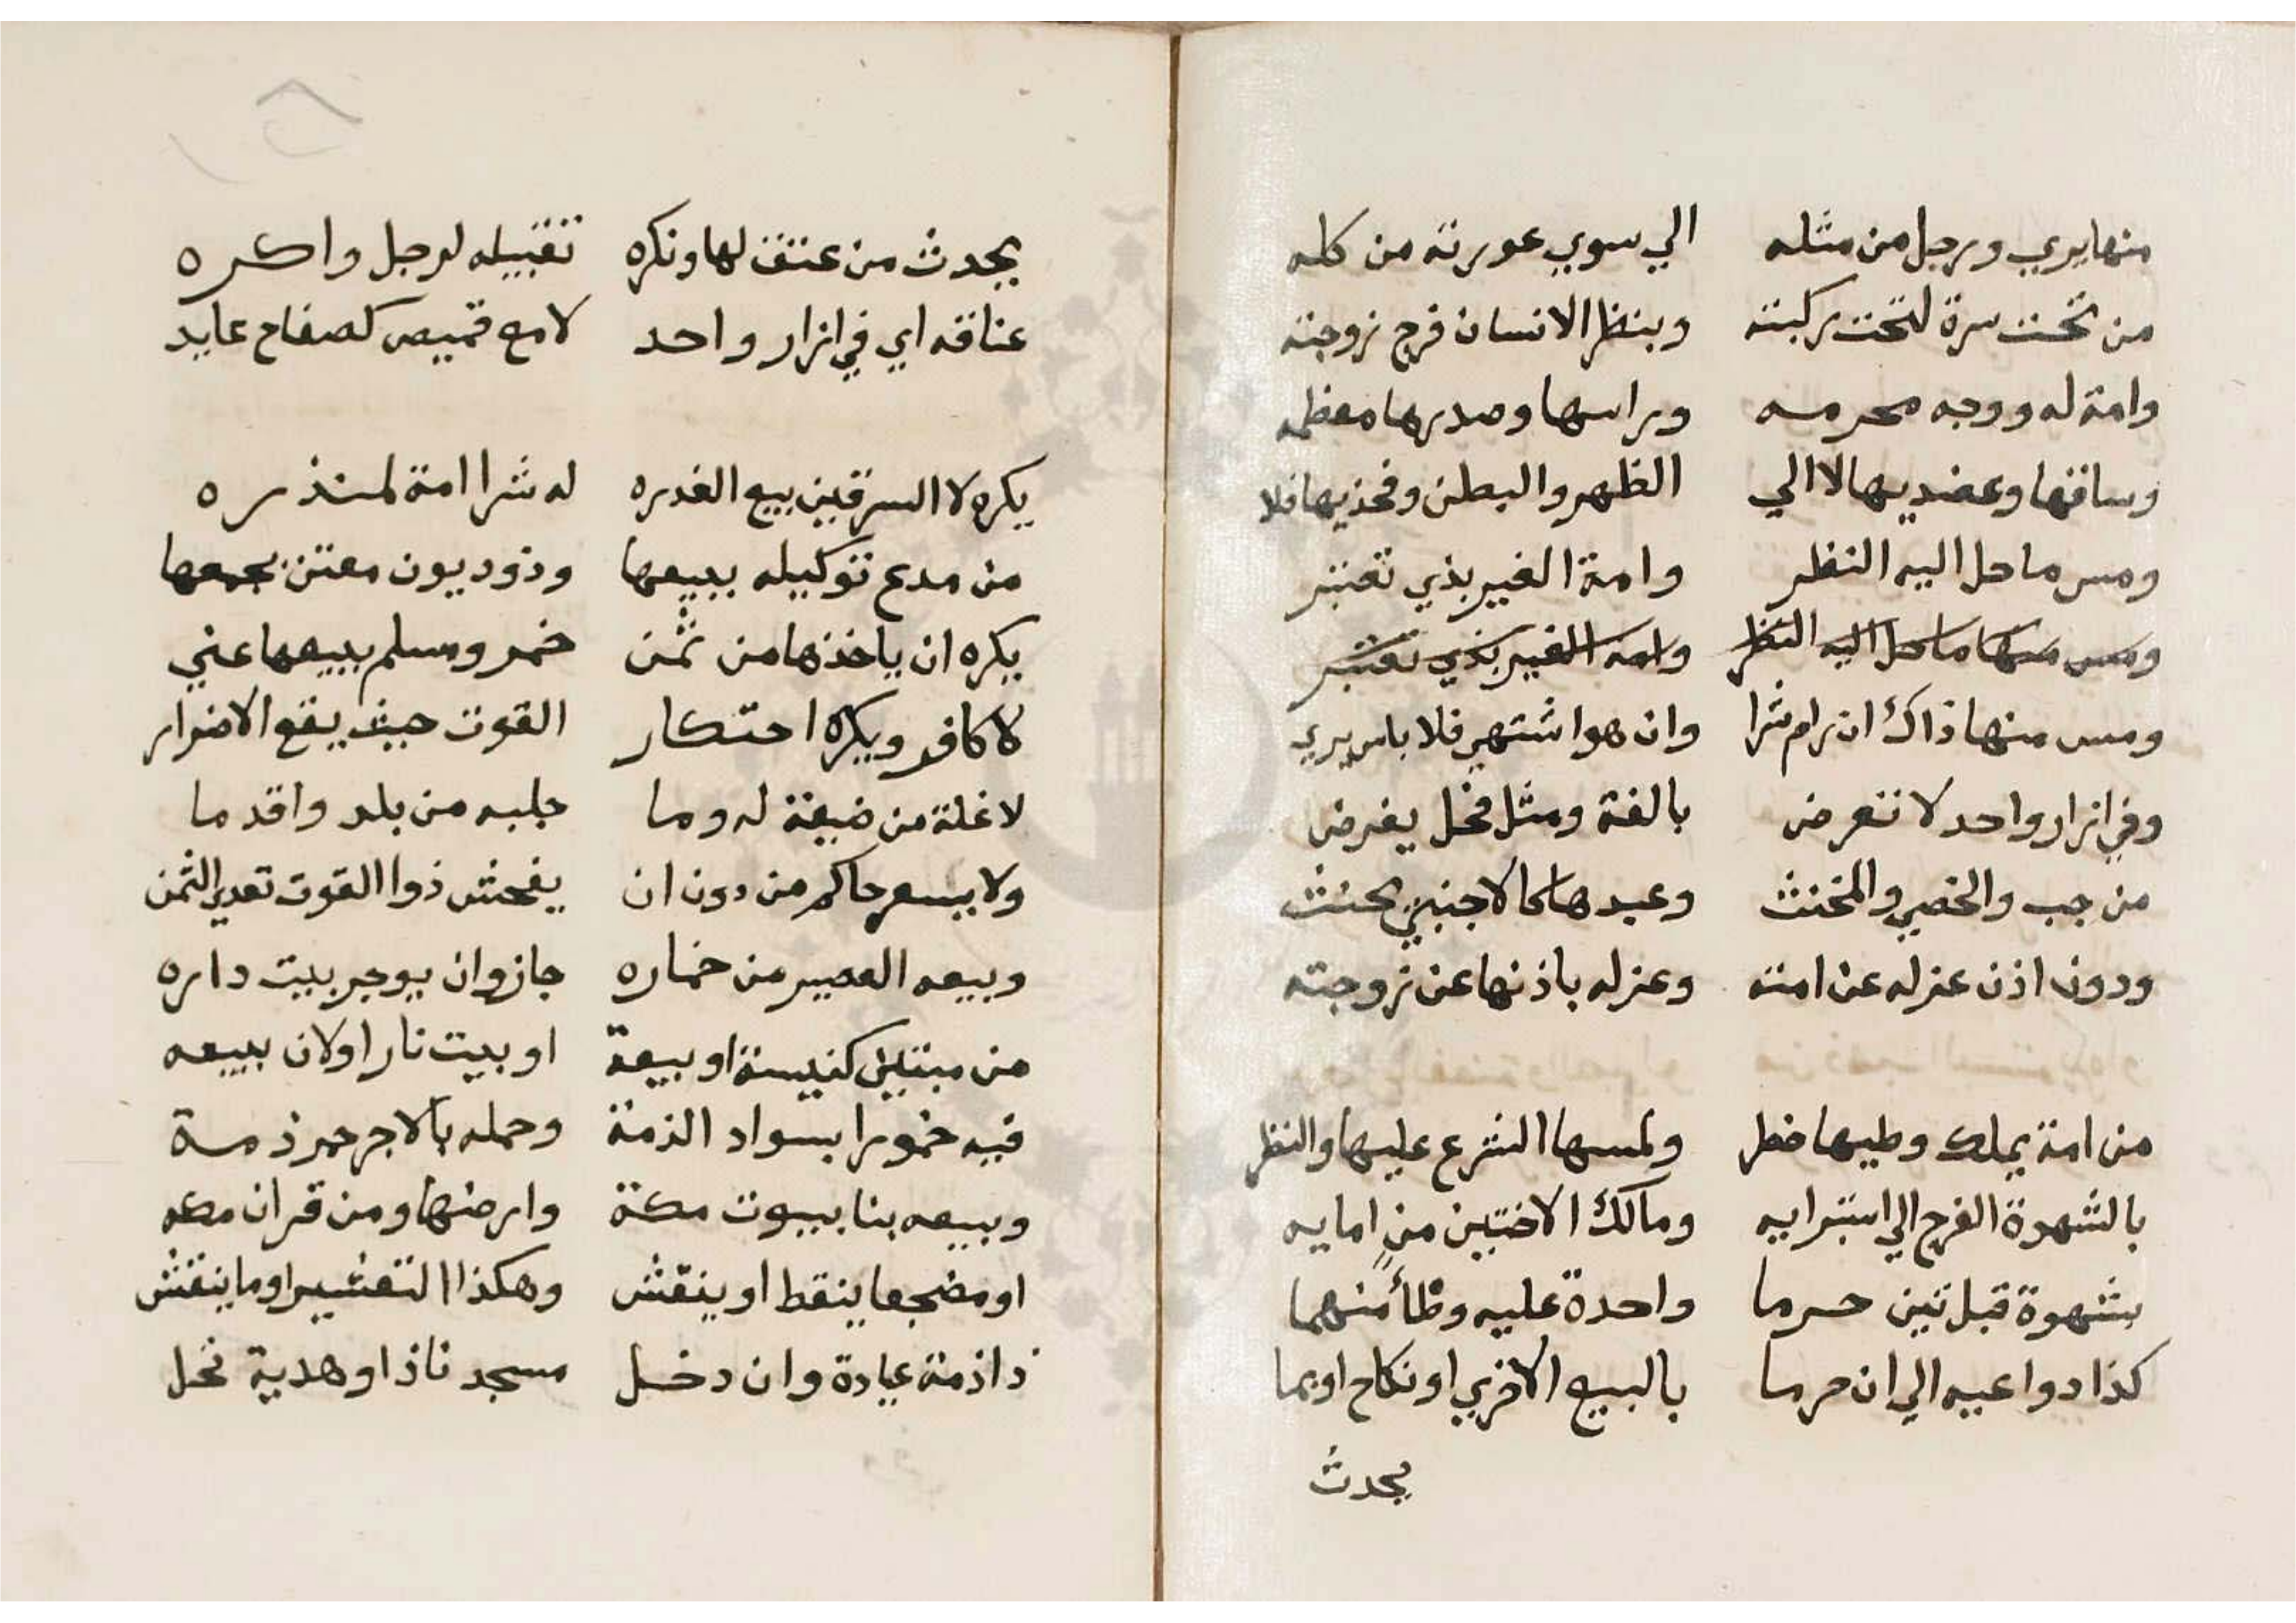 منها يري ورجل من مثله الي سوي عورته من كله
من تحت سرة لتحت ركبته وينظر الانسان فرج زوجته
وامة له ووجه محرمه وراسها وصدرها معظمه
وساقها وعضديها لا الي الظهر والبطن وفخذيها فلا
ومس ما حل اليه النظر وامة الغير بذي تعتبر
ومس منها ما حل اليه النظر وامة الغير بذي تعتبر
ومس منها ذاك ان رام شرا وان هو اشتهي فلا باس يري
وفي ازار واحد لا تعرض بالغة ومثل فحل يفرض
من جب والخصي والمخنث وعبدها كالاجنبي
ودون اذن عزله عن امته وعزله باذنها عن زوجته
من امة يملك وطيها حظر ولمسها الشرع عليها والنظر
بالشهوة الفرج الي استبرايه ومالك الاختين من امايه
بشهوة قبل تين حرما واحدة عليه وطأ منهما
كذا دواعيه الي ان حرما بالبيع الاخري او نكاح او بما
يحدث
يحدث من عتق لها ونكره تقبيله لرجل واكره
عناقه اي في ازار واحد لا مع قميص كصفاح عايد
يكره لا السرقين بيع العذره له شرا امة
من مدع توكيله ببيعها وذو ديون
يكره ان ياخذها من ثمن خمر ومسلم ببيعها عني
لا كافر ويكره احتكار القوت حيث يقع الاضرار
لا غلة من ضيعة له وما جلبه من بلد واقدما
ولا يسعر حاكم من دون ان يفحش ذوا القوت تعدي الثمن
وبيعه العصير من خماره جاز وان يوجر بيت داره
من مبتلي كنيسة او بيعة او بيت نار او لان بيعه
فيه خمورا بسواد الذمة وحمله بالاجر خمر ذمة
وبيعه بنا بيوت مكة وارضها ومن قران
او مضجعا ينقط او ينقش وهكذا التعشير او ما ينقش
ذا ذمة عيادة وان دخل مسجدنا ذا او هدية تحل